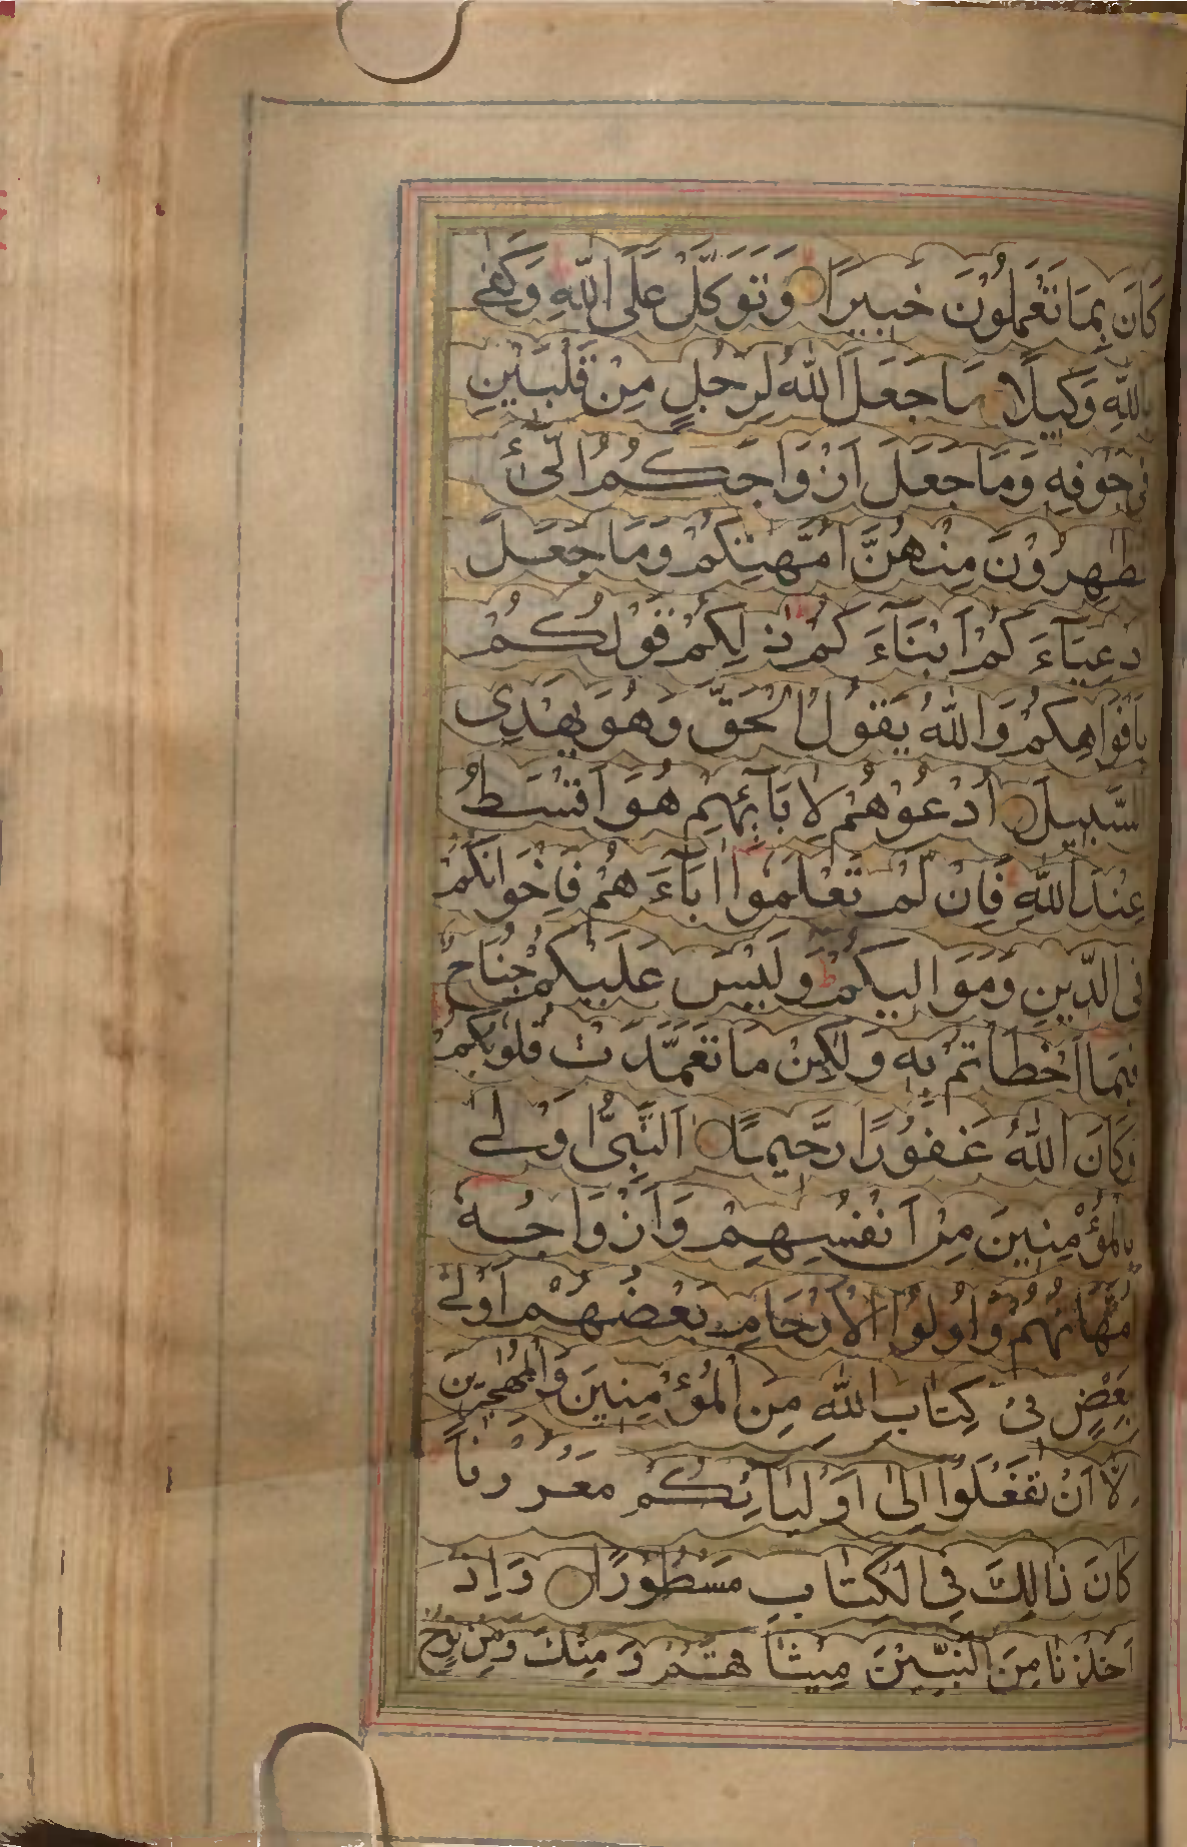 كَانَ بِمَا تَعْمَلُوْنَ خَبِيرًا وَتَوَكَّلْ عَلَى اللّٰهِ وَكَفٰے
بِاللّٰهِ وَكِيلًا مَا جَعَلَ اللّٰهُ لِرَجُلٍ مِنْ قَلْبَيْنِ
فِي جَوْفِهِ وَمَا جَعَلَ اَزْوَاجَكُمُ الّٰٓئِ
تُظٰهِرُوْنَ مِنْهُنَّ اُمَّهٰتِكُمْ وَمَا جَعَلَ
دْعِيَآءَ كُمْ اَبْنَآءَ كُمْ ذٰلِكُمْ قَوْلُكُمْ
بِاَفْوَاهِكُمْ وَاللّٰهُ يَقُوْلُ الْحَقَّ وَهُوَ يَهْدِى
السَّبِيلَ اُدْعُوْهُمْ لِاٰبَآئِهِمْ هُوَ اَقْسَطُ
عِنْدَ اللّٰهِ فَاِنْ لَمْ تَعْلَمُوا اٰبَآءَ هُمْ فَاِخْوَانُكُمْ
فِى الدِّينِ وَمَوَالِيكُمْ وَلَيْسَ عَلَيْكُمْ جُنَاحٌ
فِيمَا اَخْطَاْتُمْ بِهٖ وَلٰكِنْ مَا تَعَمَّدَتْ قُلُوبُكُمْ
وَكَانَ اللّٰهُ غَفُوْرًا رَحِيمًا اَلنَّبِىُّ اَوْلٰے
بِالْمُؤْمِنِينَ مِنْ اَنْفُسِهِمْ وَاَزْوَاجُهٗ
مَّهَاتُهُمْ وَاُولُوا الْاَرْحَامِ بَعْضُهُمْ اَوْلٰے
بِبَعْضٍ فِىْ كِتَابِ اللّٰهِ مِنَ الْمُؤْمِنِينَ وَالْمُهٰجِرِينَ
اِلَّا اَنْ تَفْعَلُوْا اِلٰى اَوْلِيَآئِكُمْ مَعْرُوفًا
كَانَ ذَالِكَ فِى الْكِتَابِ مَسْطُوْرًا وَاِذْ
اَخَذْنَا مِنَ النَّبِيّٖنَ مِيْثَا قَهُمْ وَمِنْكَ وَمِنْ نُوْحٍ